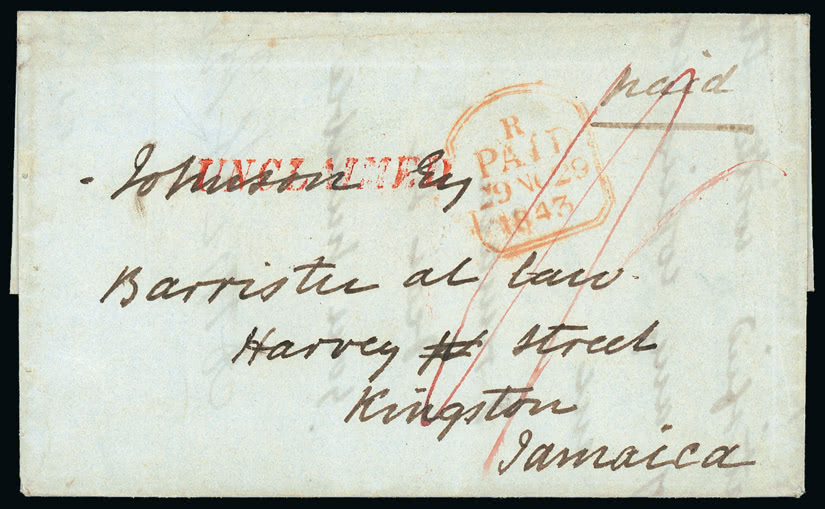 paid
R
PAID
29 NO 29
1843
UNCLAIMED
- Johnson Esq
Barrister at law.
Harvey Street
Kingston
Jamaica